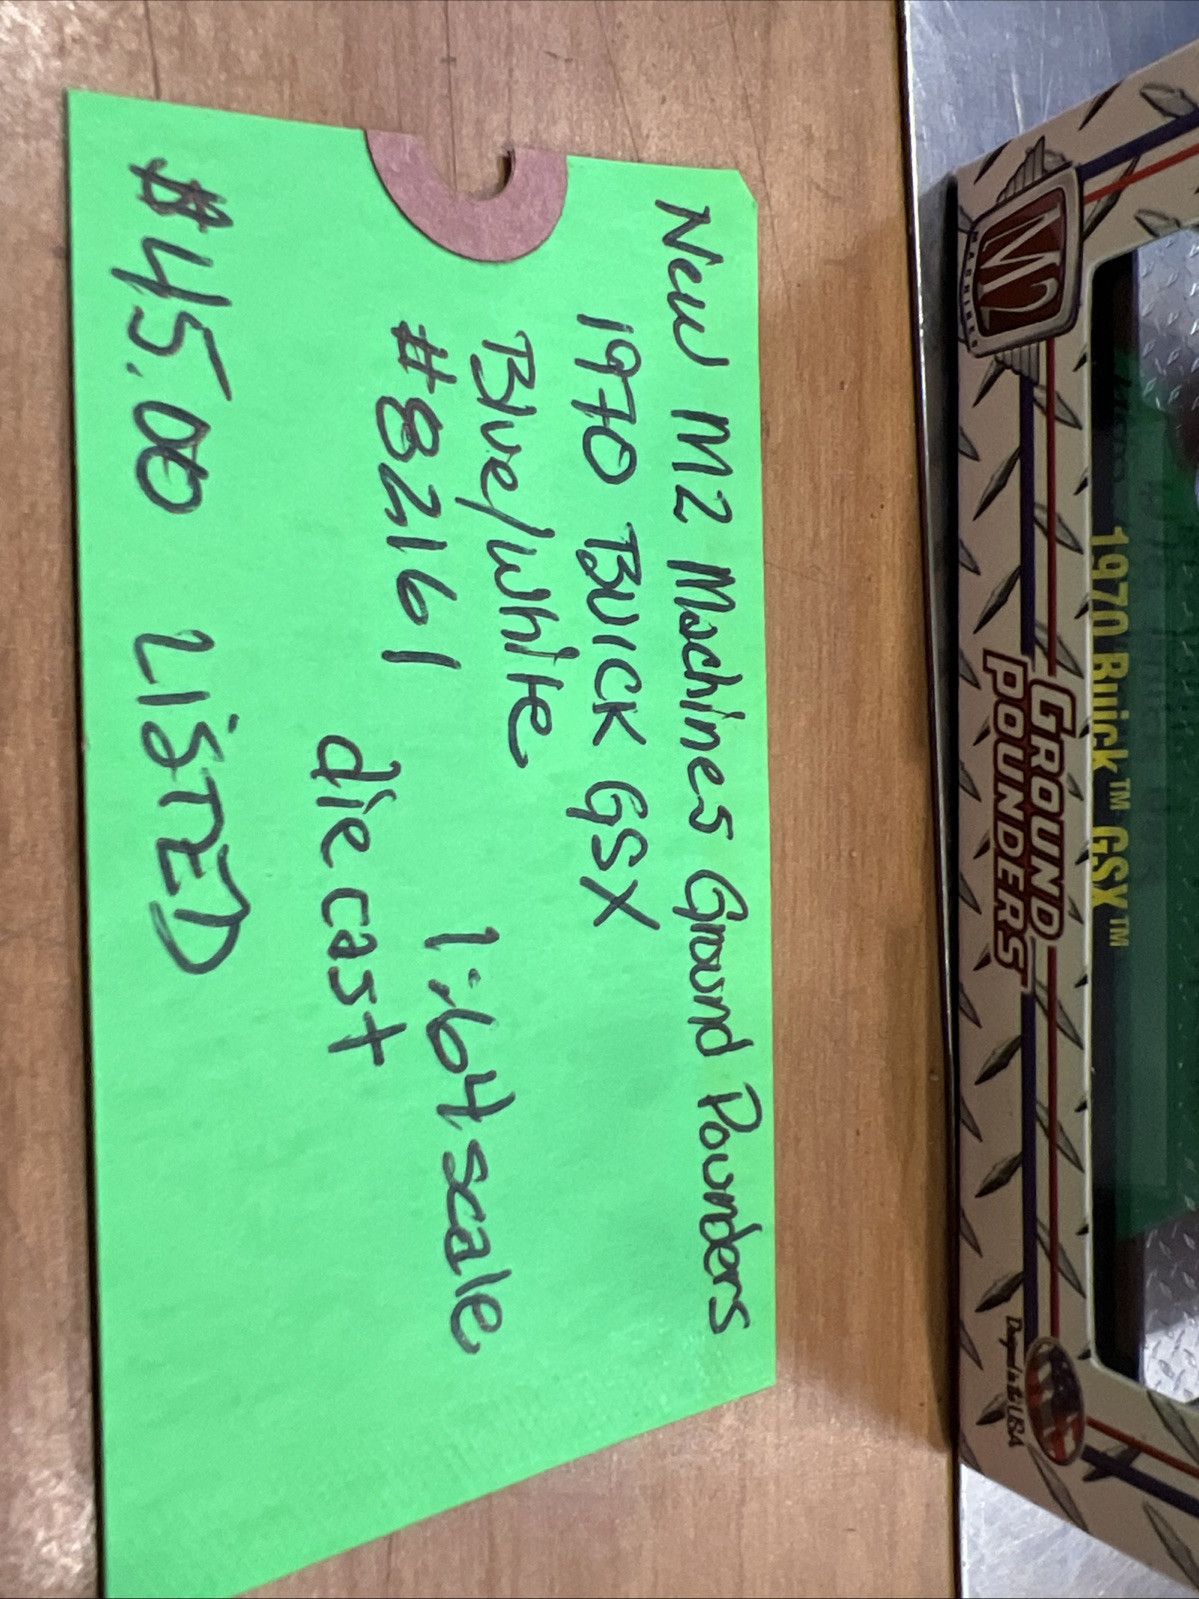 New M2 Machines Ground Pounders
1970 BUICK GSX
Blue/white
#82161
1:64 scale
diecast
$45.00 LISTED
M2
MACHINES
1970 Buick™ GSX™
GROUND
POUNDERS
Designed in the USA